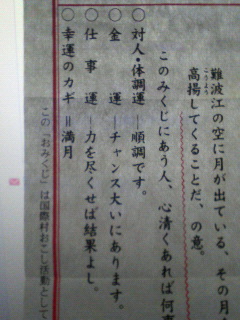 難波江の空に月が出ている、その月
高揚してくることだ、の意。
こうよう
このみくじにあう人、心清くあれば何事
○対人・体調運―順調です。
○金運―チャンス大いにあります。
○仕事運―力を尽くせば結果よし。
○幸運のカギ＝満月
この「おみくじ」は国際村おこし活動として